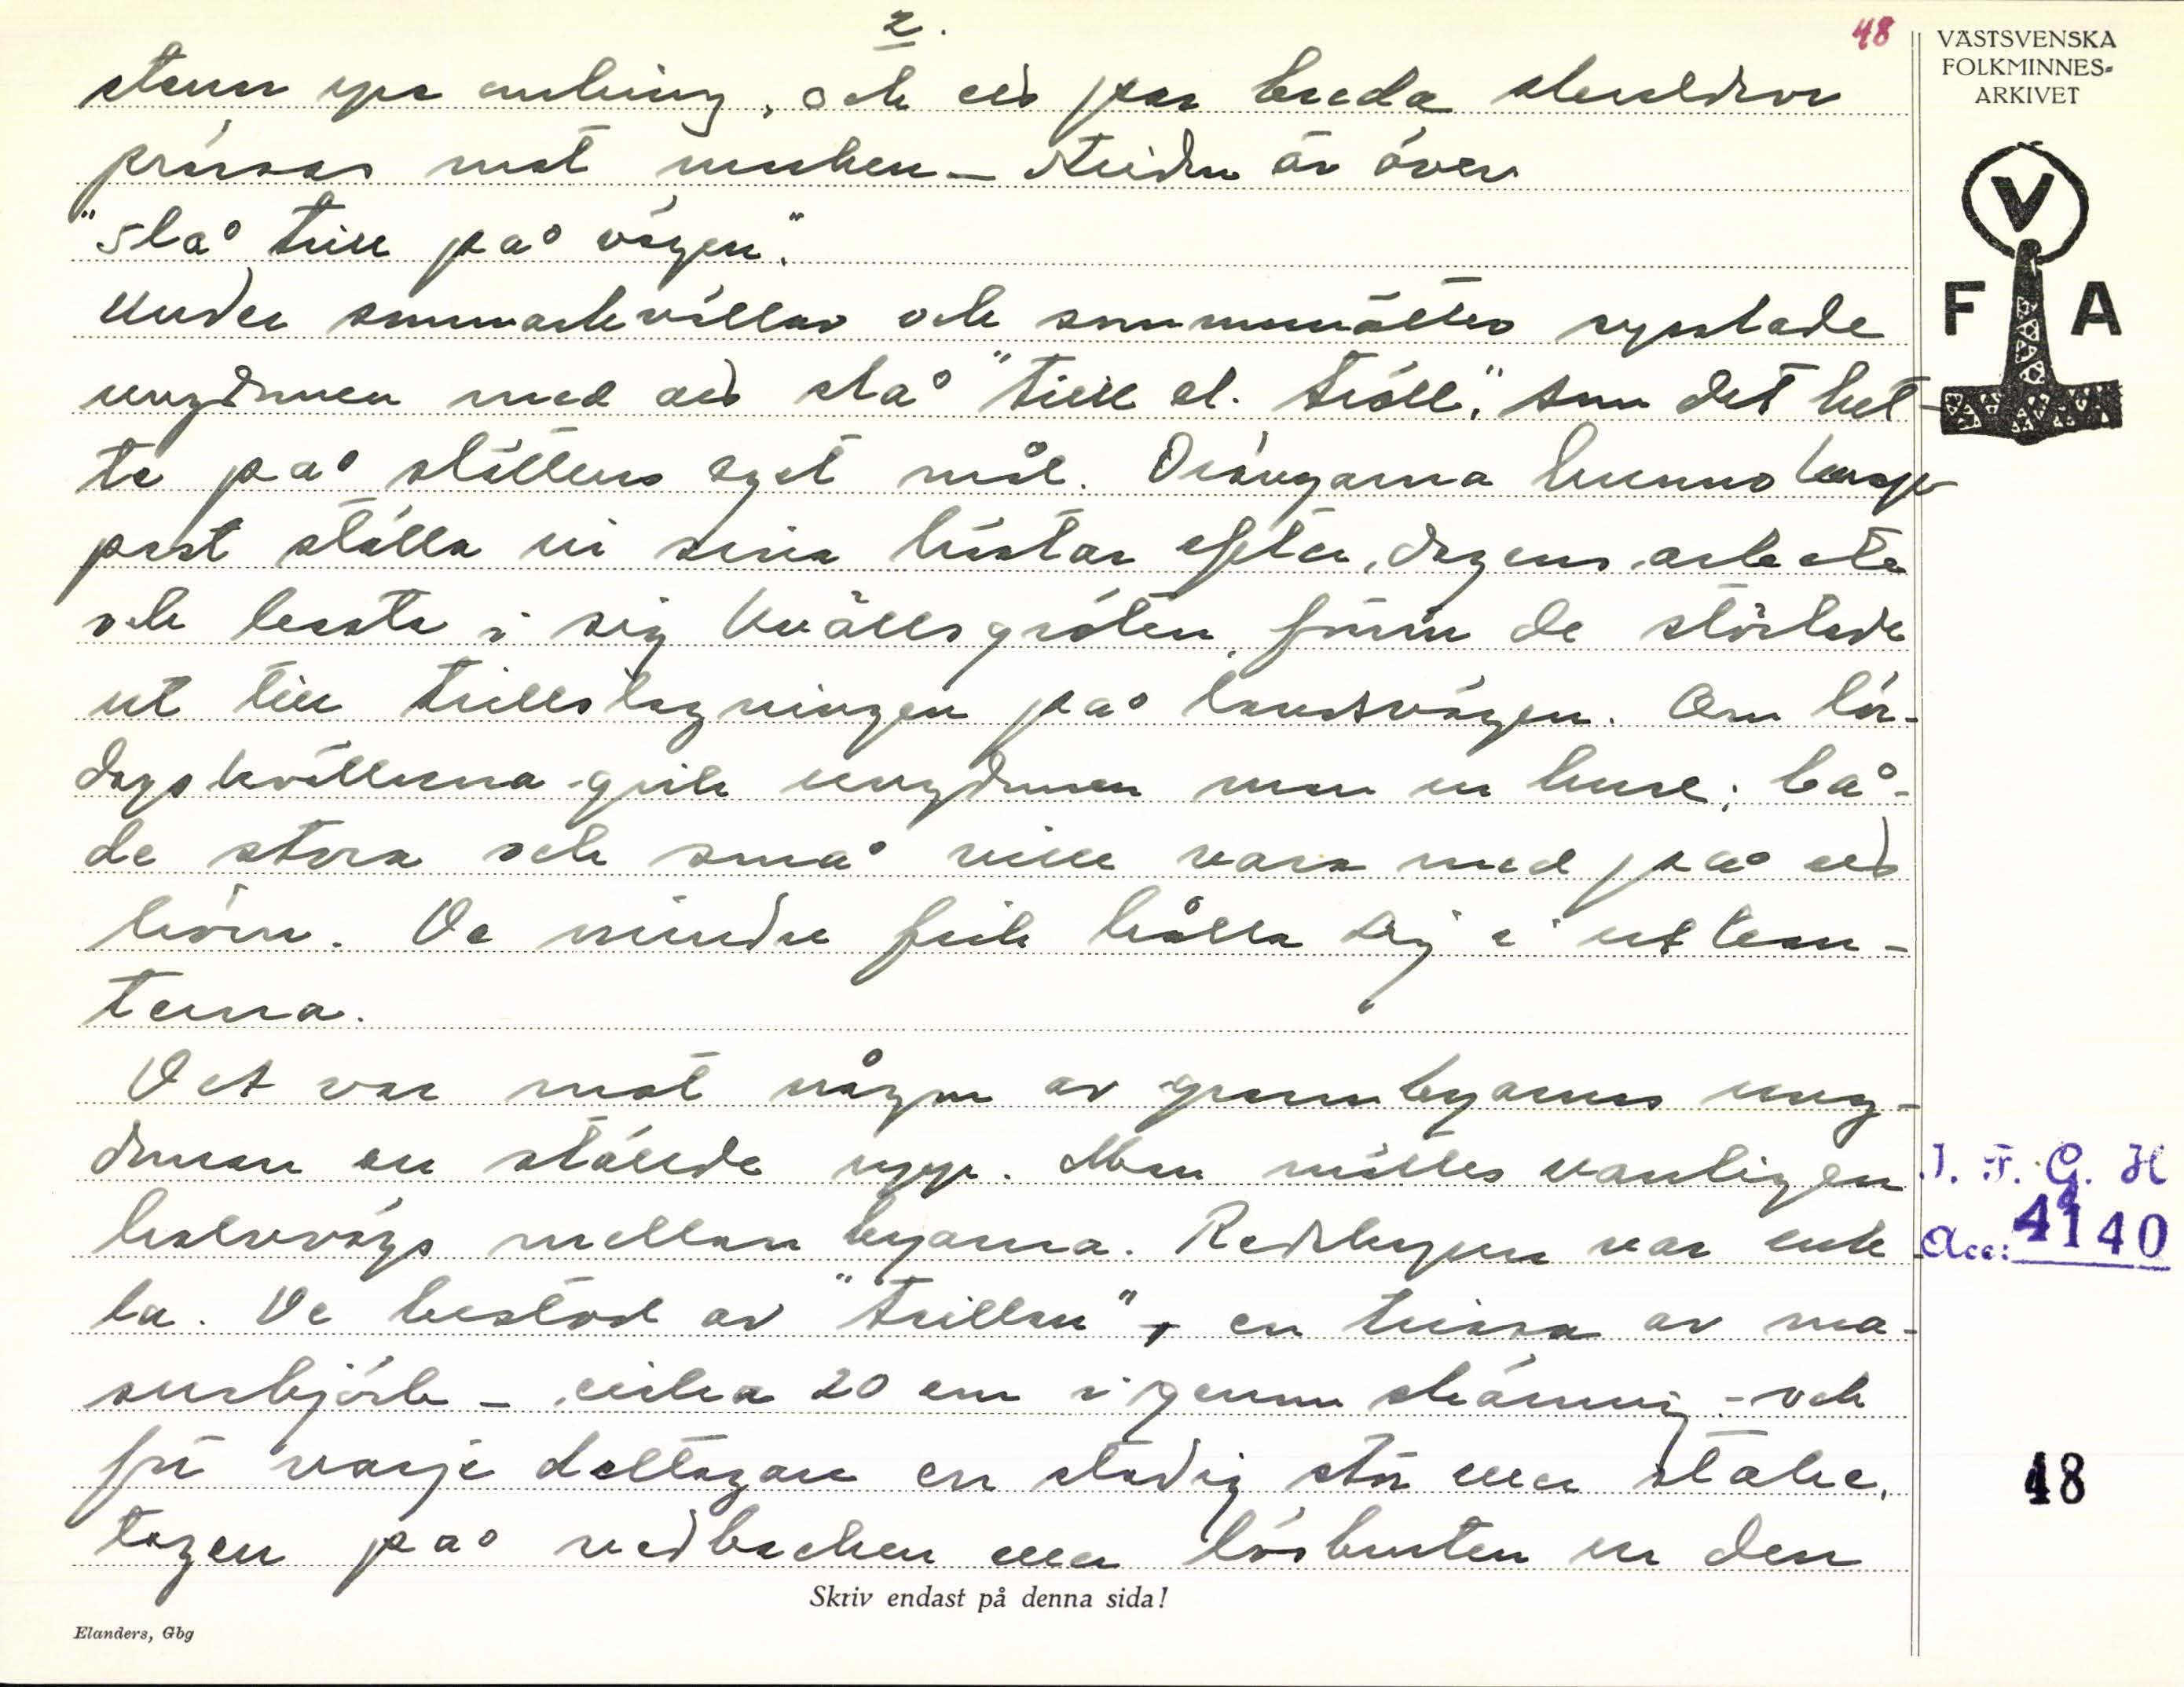 2.
48
VÄSTSVENSKA
FOLKMINNES-
ARKIVET
V
F A
och ett par breda skuldror
pressas mot marken – Striden är över
"slå trill på vägen".
Under sommarkvällar och sommarnätter sysslade
ungdomen med att slå "trill el. tröll", som det het-
te på slättens eget mål. Drängarna hunno knap-
past ställa in sina hästar efter dagens arbete
och kasta i sig kvällsgröten, förrän de störtade
ut till trillslagningen på landsvägen. Om lör-
dagskvällarna gick ungdomen man ur huse; bå-
de stora och små ville vara med på ett
hörn. De mindre fick hålla sig i utkan-
terna.
Det var mot någon av grannbyarnas ung-
domar en ställde upp. Man möttes vanligen
halvvägs mellan byarna. Redskapen var enk-
la. De bestod av "trillan", en trissa av ma-
surbjörk – cirka 20 cm i genomskärning – och
för varje deltagare en stadig stör eller stake,
tagen på vedbacken eller lösbruten ur den
J. F. G. H
Acc: 4140
48
Skriv endast på denna sida!
Elanders, Gbg